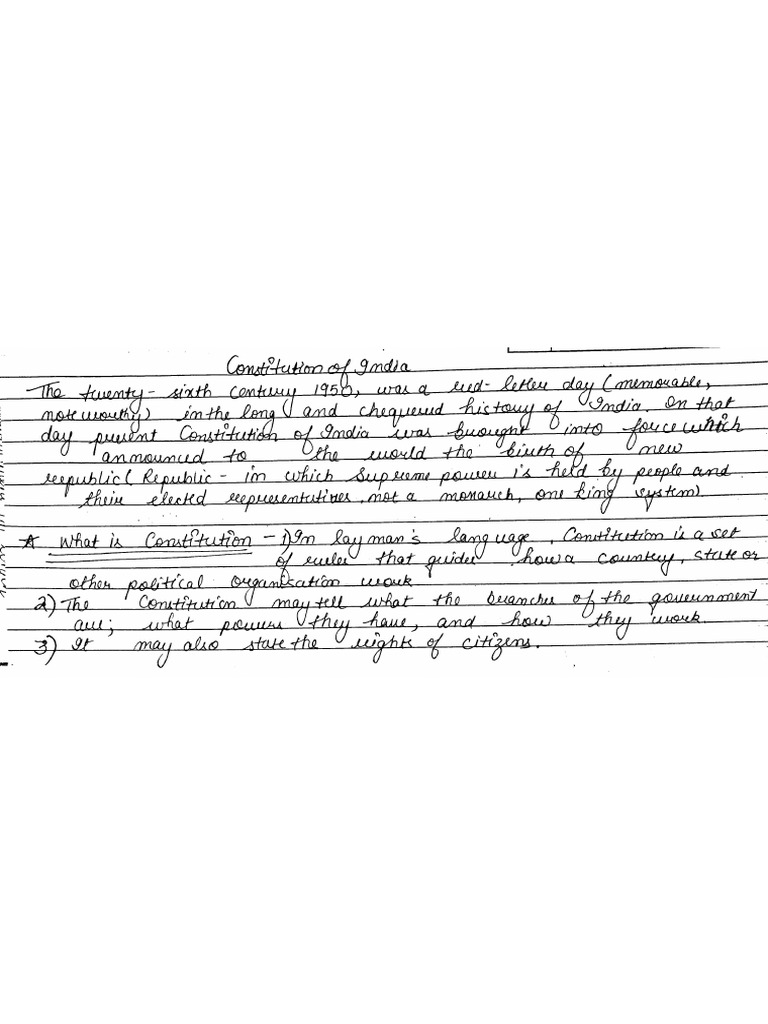 Constitution of India
The twenty-sixth century 1950, was a red-letter day (memorable,
noteworthy) in the long and chequered history of India. On that
day present Constitution of India was brought into force which
announced to the world the birth of new
republic (Republic - in which Supreme power is held by people and
their elected representatives, not a monarch, one king system).
☆ What is Constitution - 1) In layman's language, Constitution is a set
of rules that guides how a country, state or
other political organisation work
2) The Constitution may tell what the branches of the government
are; what powers they have, and how they work.
3) It may also state the rights of citizens.